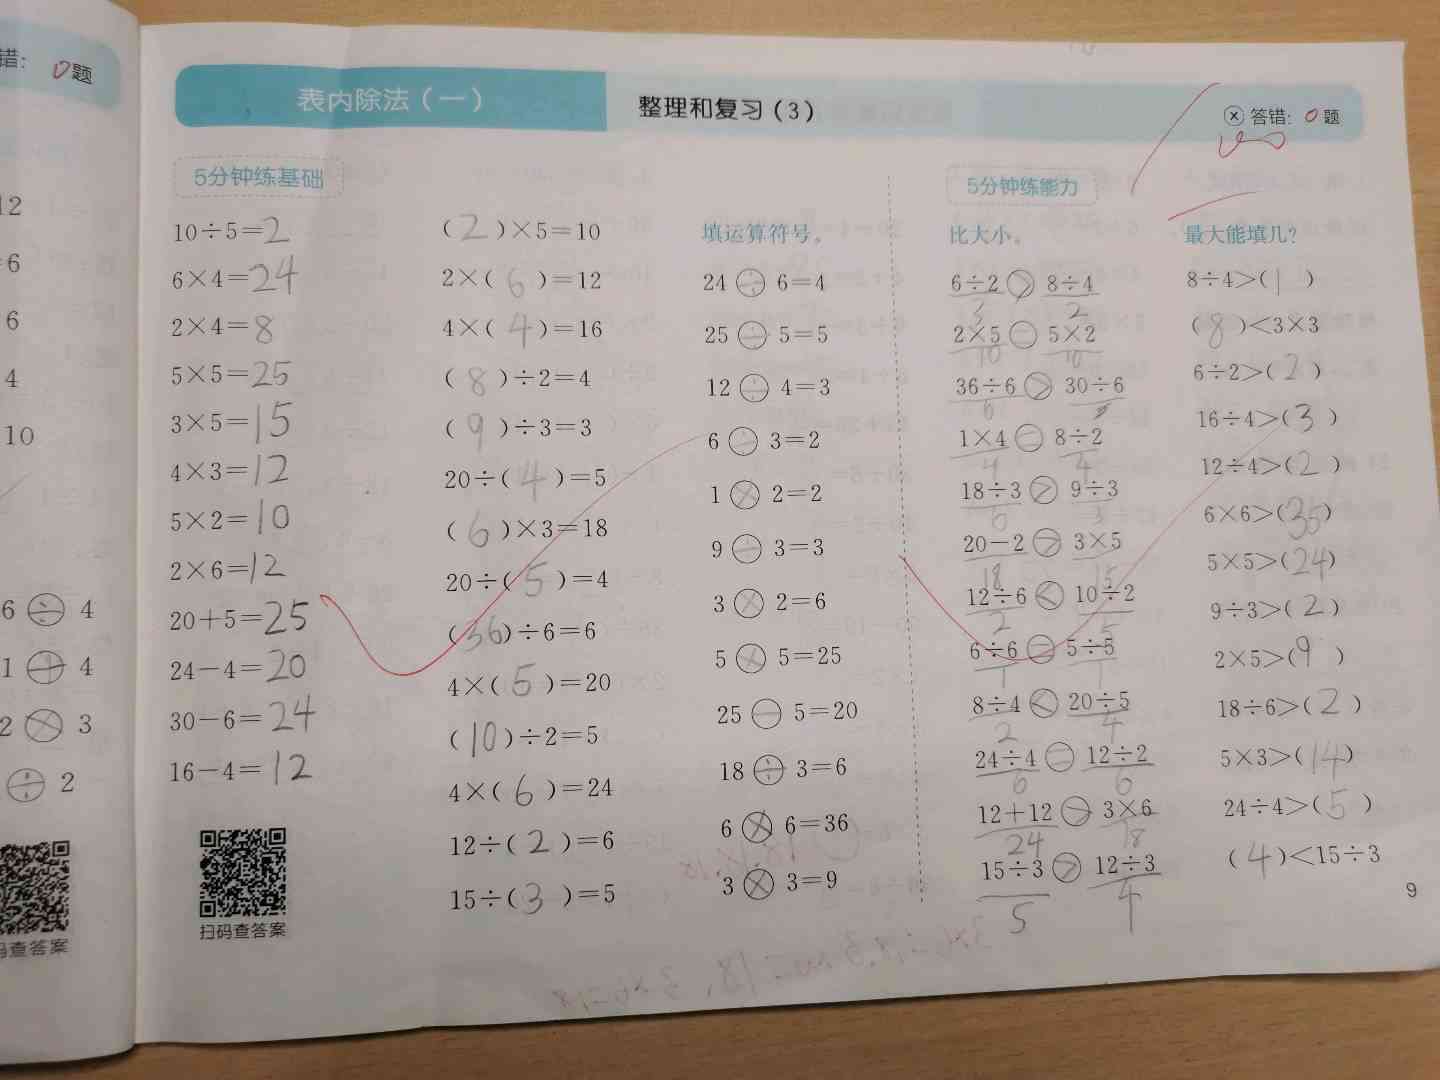 错: 0题
12
=6
6
4
10
6÷4
1+4
2×3
÷2
码查答案
表内除法(一)
整理和复习(3)
× 答错: 0题
5分钟练基础
10÷5=2
6×4=24
2×4=8
5×5=25
3×5=15
4×3=12
5×2=10
2×6=12
20+5=25
24-4=20
30-6=24
16-4=12
扫码查答案
(2)×5=10
2×(6)=12
4×(4)=16
(8)÷2=4
(9)÷3=3
20÷(4)=5
(6)×3=18
20÷(5)=4
(36)÷6=6
4×(5)=20
(10)÷2=5
4×(6)=24
12÷(2)=6
15÷(3)=5
填运算符号。
24÷6=4
25÷5=5
12÷4=3
6÷3=2
1×2=2
9÷3=3
3×2=6
5×5=25
25-5=20
18÷3=6
6×6=36
3×3=9
5分钟练能力
比大小。
6÷2>8÷4
3 2
2×5=5×2
10 10
36÷6>30÷6
6 5
1×4=8÷2
4 4
18÷3>9÷3
6 3
20-2>3×5
18 15
12÷6<10÷2
2 5
6÷6=5÷5
1 1
8÷4<20÷5
2 4
24÷4=12÷2
6 6
12+12>3×6
24 18
15÷3>12÷3
5 4
最大能填几?
8÷4>(1)
(8)<3×3
6÷2>(2)
16÷4>(3)
12÷4>(2)
6×6>(35)
5×5>(24)
9÷3>(2)
2×5>(9)
18÷6>(2)
5×3>(14)
24÷4>(5)
(4)<15÷3
9